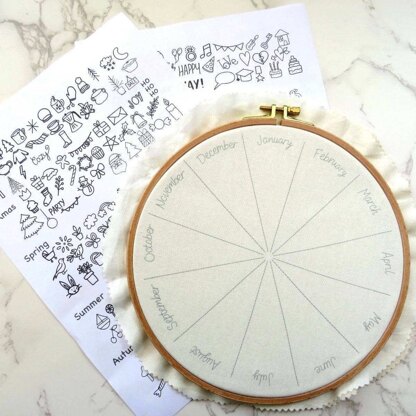 HAPPY
DAY!
HO
HO
HO
Cozy
PARTY
Spring
Summer
January
February
March
April
May
June
July
August
September
October
November
December